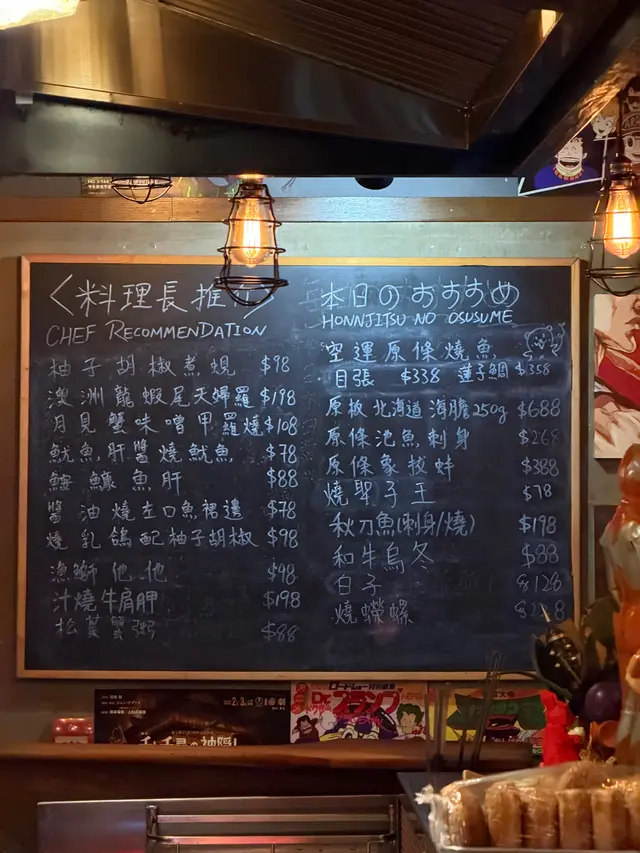 〈料理長推
CHEF RECOMMENDATION
柚子胡椒煮蜆 $98
澳洲龍蝦尾天婦羅 $198
月見蟹味噌甲羅燒 $108
魷魚肝醬燒魷魚 $78
鮟鱇魚肝 $88
醬油燒左口魚裙邊 $78
燒乳鴿配柚子胡椒 $98
漁師他他 $98
汁燒牛肩胛 $198
松葉蟹粥 $88
本日のおすすめ
HONNJITSU NO OSUSUME
空運原條燒魚
目張 $338 蓮子鯛 $358
原板北海道海膽250g $688
原條池魚刺身 $268
原條象拔蚌 $388
燒墨子王 $78
秋刀魚(刺身/燒) $198
和牛烏冬 $88
白子 $128
燒蠑螺
千と千尋の神隠し